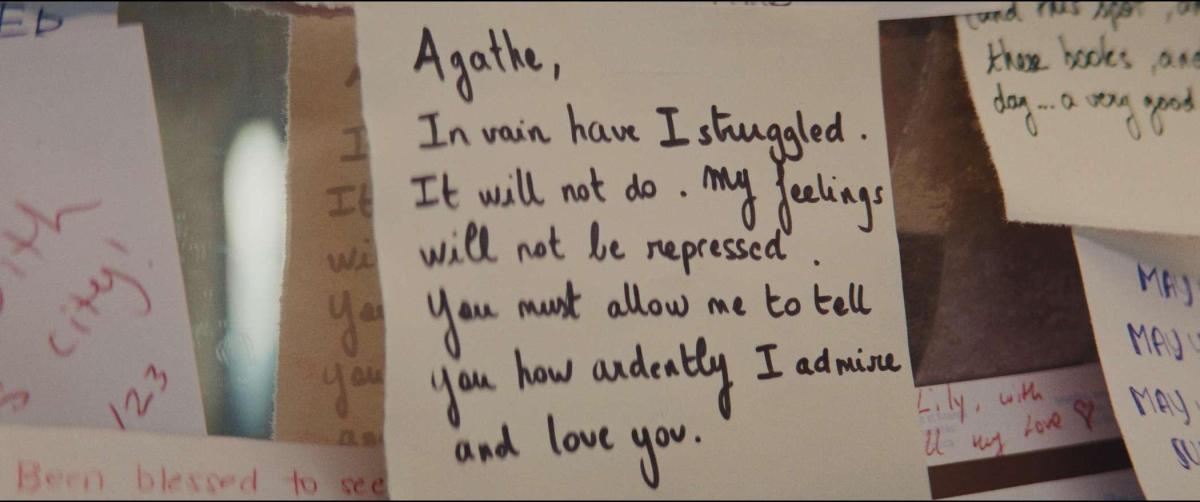 Agathe,
In vain have I struggled.
It will not do. My feelings
will not be repressed.
You must allow me to tell
you how ardently I admire
and love you.
ED
city!
123
Been blessed to see
I
It
wi
You
you
an
and this spot
these books, and
day... a very good
Lily, with
ll my love ♡
MAY
MAY
MAY